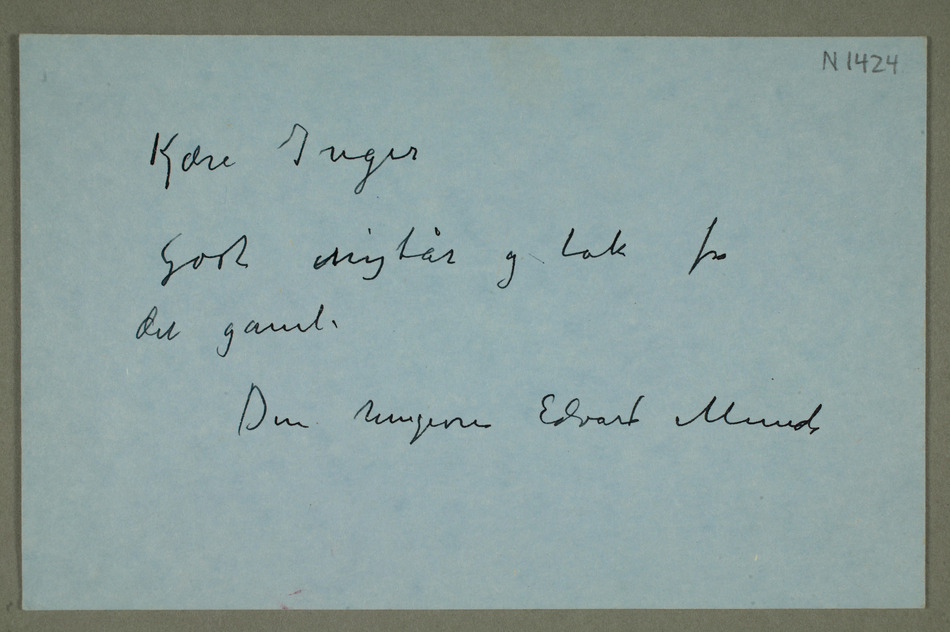 N 1424
Kjære Inger
Godt nytår og tak for
det gaml.
Din hengivne Edvard Munch